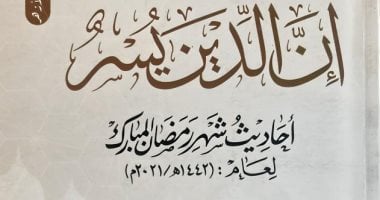 إِنَّ الدِّينَ يُسْرٌ
أحاديثُ شَهرِ رَمَضَانَ المُبَارَك
لِعَام: (١٤٤٢هـ/٢٠٢١م)